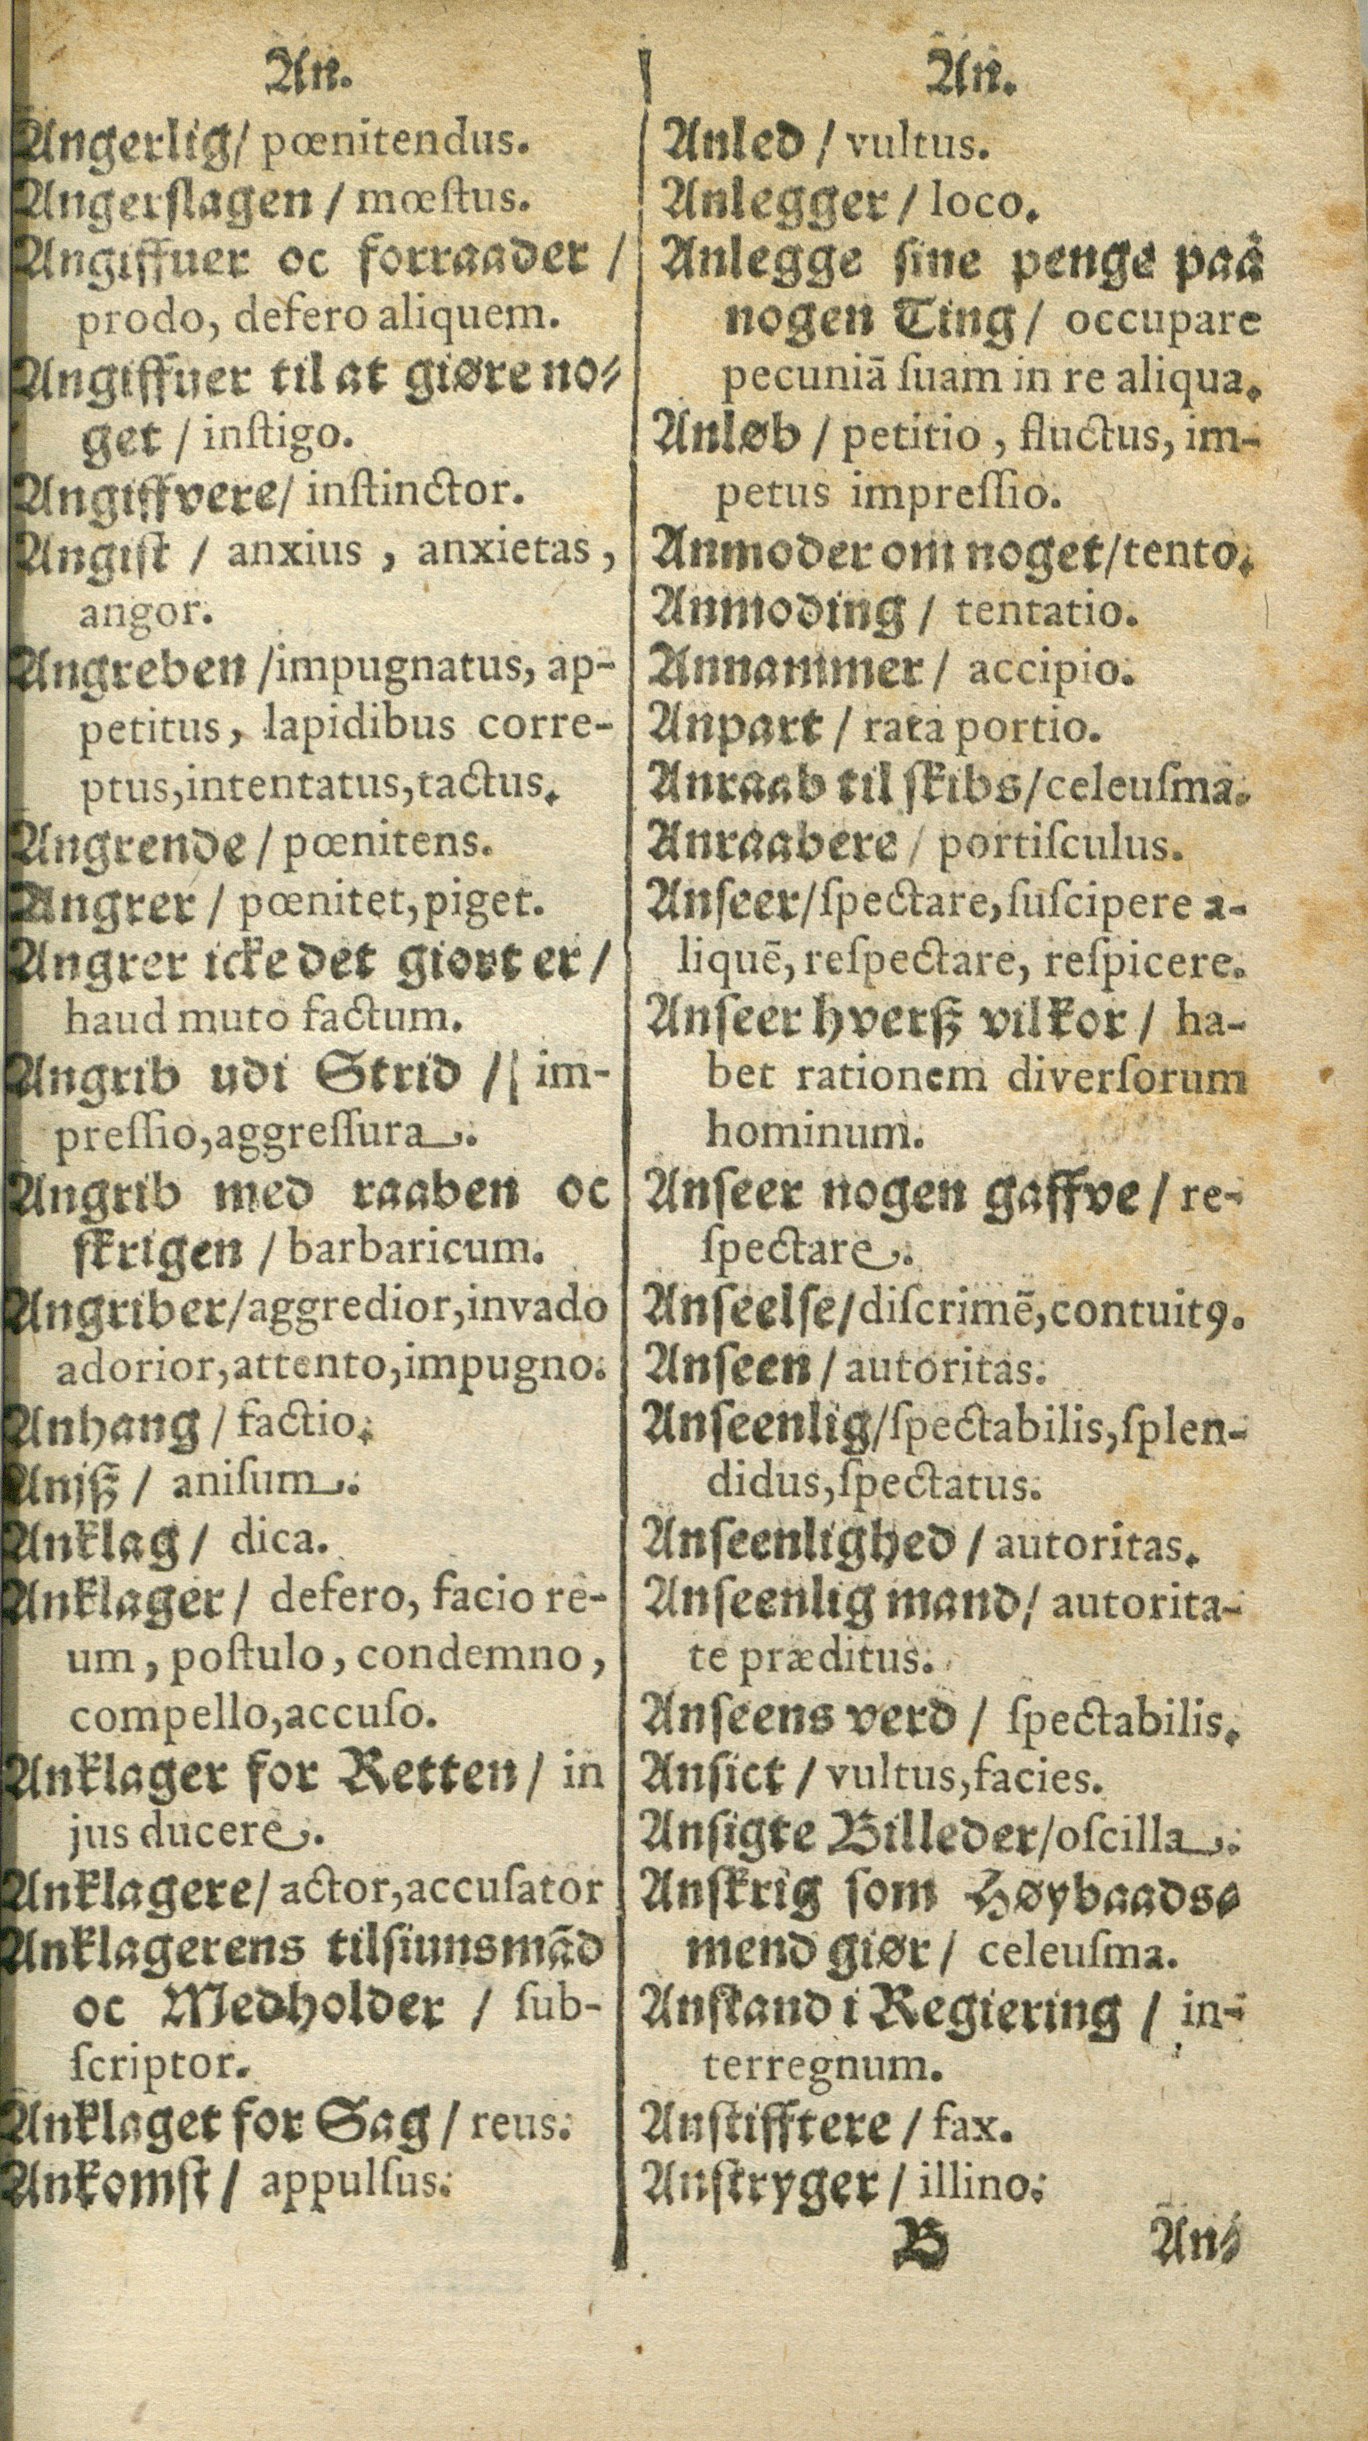 An.
Angerlig/ pœnitendus.
Angerslagen / mœſtus.
Angiffuer oc forraader /
prodo, defero aliquem.
Angiffuer til at giøre no⸗
get / inſtigo.
Angiffvere/ inſtinctor.
Angiſt / anxius , anxietas ,
angor.
Angreben /impugnatus, ap-
petitus, lapidibus corre-
ptus,intentatus,tactus.
Angrende / pœnitens.
Angrer / pœnitet,piget.
Angrer icke det giort er /
haud muto factum.
Angrib udi Strid / im-
preſſio,aggreſſura.
Angrib med raaben oc
ſkrigen / barbaricum.
Angriber/aggredior,invado
adorior,attento,impugno.
Anhang / factio.
Anjß / aniſum.
Anklag / dica.
Anklager / defero, facio re-
um , poſtulo , condemno ,
compello,accuſo.
Anklager for Retten / in
jus ducere.
Anklagere/ actor,accuſator
Anklagerens tilſiunsmād
oc Medholder / ſub-
ſcriptor.
Anklaget for Sag / reus.
Ankomſt / appulſus.
An.
Anled / vultus.
Anlegger / loco.
Anlegge ſine penge paa
nogen Ting / occupare
pecuniā ſuam in re aliqua.
Anløb / petitio , fluctus, im-
petus impreſſio.
Anmoder om noget/tento.
Anmoding / tentatio.
Annammer / accipio.
Anpart / rata portio.
Anraab til ſkibs/celeuſma.
Anraabere / portiſculus.
Anſeer/ſpectare,ſuſcipere a-
liquē, reſpectare, reſpicere.
Anſeer hverß vilkor / ha-
bet rationem diverſorum
hominum.
Anſeer nogen gaffve / re-
ſpectare.
Anſeelſe/diſcrimē,contuitꝰ.
Anſeen / autoritas.
Anſeenlig/ſpectabilis,ſplen-
didus,ſpectatus.
Anſeenlighed / autoritas.
Anſeenlig mand/ autorita-
te præditus.
Anſeens verd / ſpectabilis.
Anſict / vultus,facies.
Anſigte Billeder/oſcilla.
Anſkrig ſom Høybaads⸗
mend giør / celeuſma.
Anſtand i Regiering / in-
terregnum.
Anſtifftere / fax.
Anſtryger / illino.
B An⸗